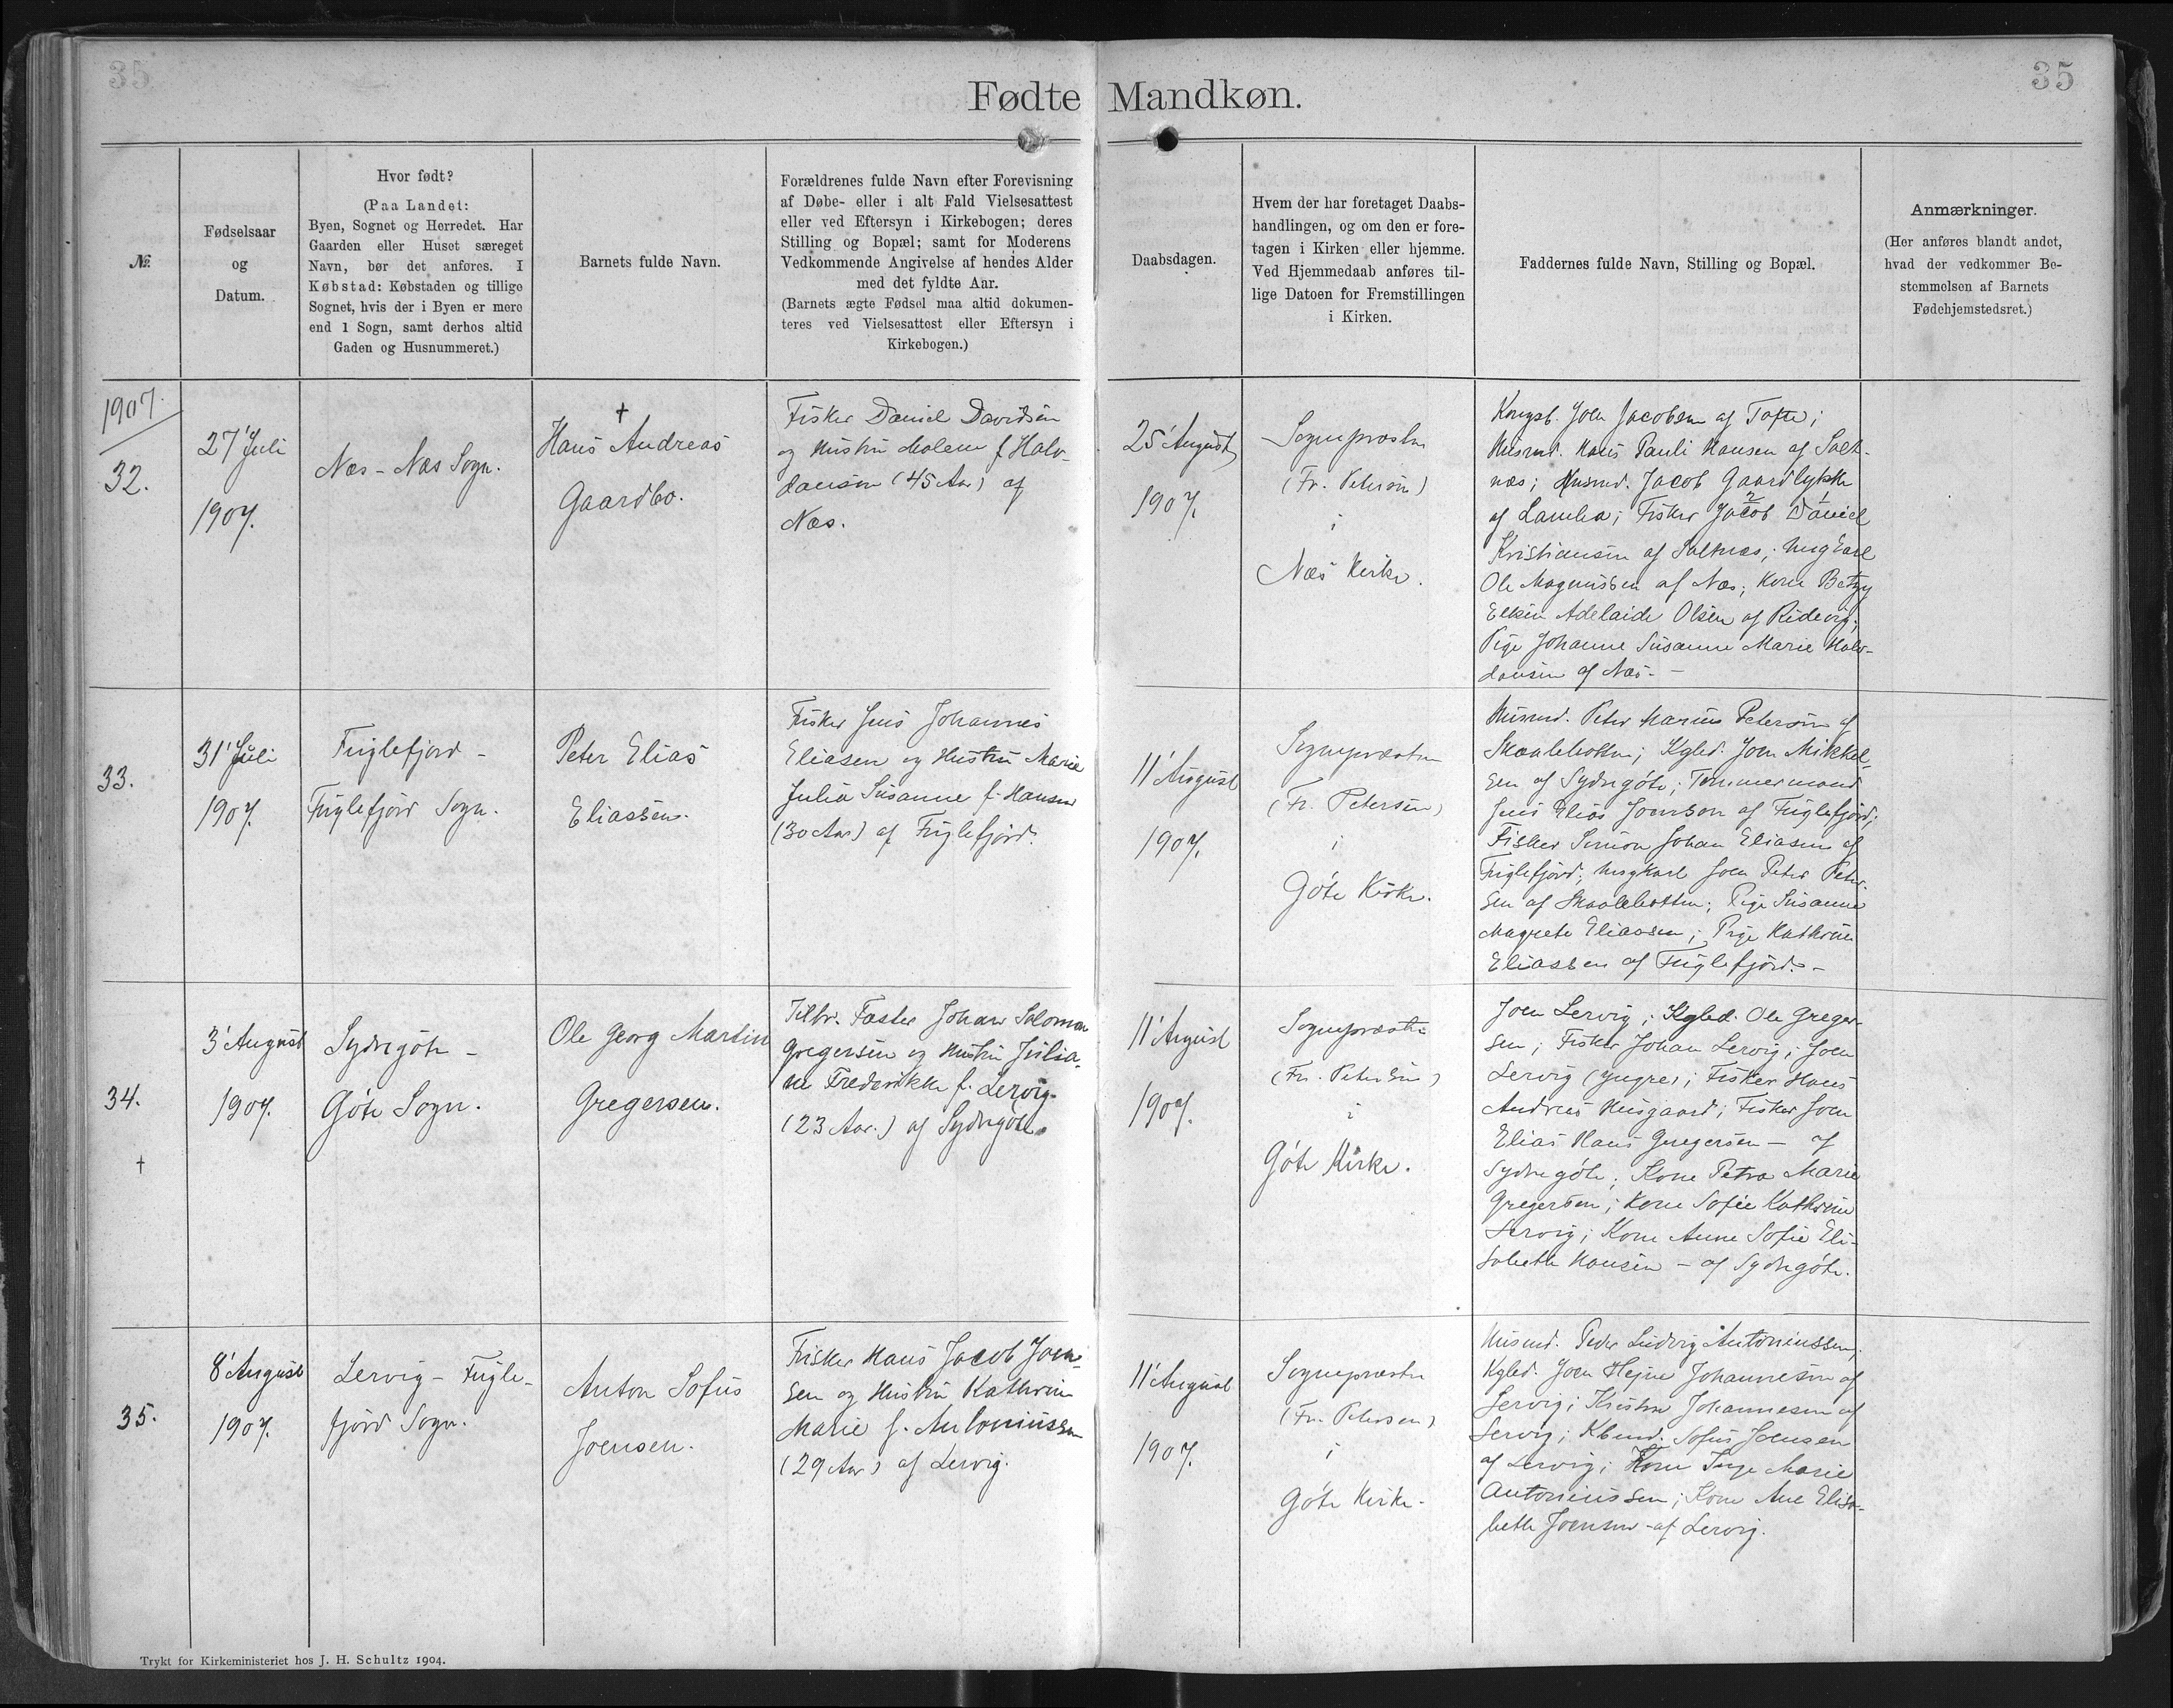 35
35
Fødte Mandkøn.
№
Fødselsaar
og
Datum.
Hvor født?
(Paa Landet:
Byen, Sognet og Herredet. Har
Gaarden eller Huset særeget
Navn, bør det anføres. I
Købstad: Købstaden og tillige
Sognet, hvis der i Byen er mere
end 1 Sogn, samt derhos altid
Gaden og Husnummeret.)
Barnets fulde Navn.
Forældrenes fulde Navn efter Forevisning
af Døbe- eller i alt Fald Vielsesattest
eller ved Eftersyn i Kirkebogen; deres
Stilling og Bopæl; samt for Moderens
Vedkommende Angivelse af hendes Alder
med det fyldte Aar.
(Barnets ægte Fødsel maa altid dokumen-
teres ved Vielsesattest eller Eftersyn i
Kirkebogen.)
Daabsdagen.
Hvem der har foretaget Daabs-
handlingen, og om den er fore-
tagen i Kirken eller hjemme.
Ved Hjemmedaab anføres til-
lige Datoen for Fremstillingen
i Kirken.
Faddernes fulde Navn, Stilling og Bopæl.
Anmærkninger.
(Her anføres blandt andet,
hvad der vedkommer Be-
stemmelsen af Barnets
Fødehjemstedsret.)
1907.
32.
27' Juli
1907.
Næs - Næs Sogn.
†
Hans Andreas
Gaardbo.
Fisker Daniel Davidsen
og Hustru Malene f. Halv-
dansen (45 Aar) af
Næs.
25' August
1907.
Sognepræsten
(Fr. Petersen)
i
Næs Kirke.
Kongsb. Joen Jacobsen af Tofte;
Husmd. Hans Pauli Hansen af Salt-
næs; Husmd. Jacob Gaardlykke
af Lamba; Fisker Jacob Daniel
Kristiansen af Saltnæs; Ungkarl
Ole Magnussen af Næs; Kone Betzy
Elkin Adelaide Olsen af Ridevig;
Pige Johanne Susanne Marie Halv-
dansen af Næs. -
33.
31' Juli
1907.
Fuglefjord -
Fuglefjord Sogn.
Peter Elias
Eliassen.
Fisker Jens Johannes
Eliasen og Hustru Marie
Julia Susanne f. Hansen
(30 Aar) af Fuglefjord.
11' August
1907.
Sognepræsten
(Fr. Petersen)
i
Göte Kirke.
Husmd. Peter Marius Petersen af
Skaalebotten; Kgled. Joen Mikkel-
sen af Sydregöte; Tømmermand
Jens Elias Joensen af Fuglefjord;
Fisker Simon Johan Eliasen af
Fuglefjord; Ungkarl Joen Peter Peter-
sen af Skaalebotten; Pige Susanne
Magrete Eliassen; Pige Kathrine
Eliassen af Fuglefjord. -
34.
†
3' August
1907.
Sydregöte -
Göte Sogn.
Ole Georg Martin
Gregersen.
Tilbr. Fæster Johan Salomon
Gregersen og Hustru Julia-
ne Frederikke f. Lervig
(23 Aar.) af Sydregöte.
11' August
1907.
Sognepræsten
(Fr. Petersen)
i
Göte Kirke.
Joen Lervig; Kgled. Ole Greger-
sen; Fisker Johan Lervig; Joen
Lervig (yngre); Fisker Hans
Andreas Husgaard; Fisker Joen
Elias Hans Gregersen - af
Sydregöte; Kone Petra Marie
Gregersen; Kone Sofie Kathrine
Lervig; Kone Anne Sofie Eli-
sabeth Hansen - af Sydregöte.
35.
8' August
1907.
Lervig - Fugle-
fjord Sogn.
Anton Sofus
Joensen.
Fisker Hans Jacob Joen-
sen og Hustru Kathrine
Marie f. Antoniussen
(29 Aar) af Lervig.
11' August
1907.
Sognepræsten
(Fr. Petersen)
i
Göte Kirke.
Husmd. Peder Ludvig Antoniussen;
Kgled. Joen Hejne Johannesen af
Lervig; Johannesen af
Lervig; Sofus Joensen
af Lervig; Kone Inge Marie
Antoniussen; Kone Ane Elisa-
beth Joensen - af Lervig.
Trykt for Kirkeministeriet hos J. H. Schultz 1904.